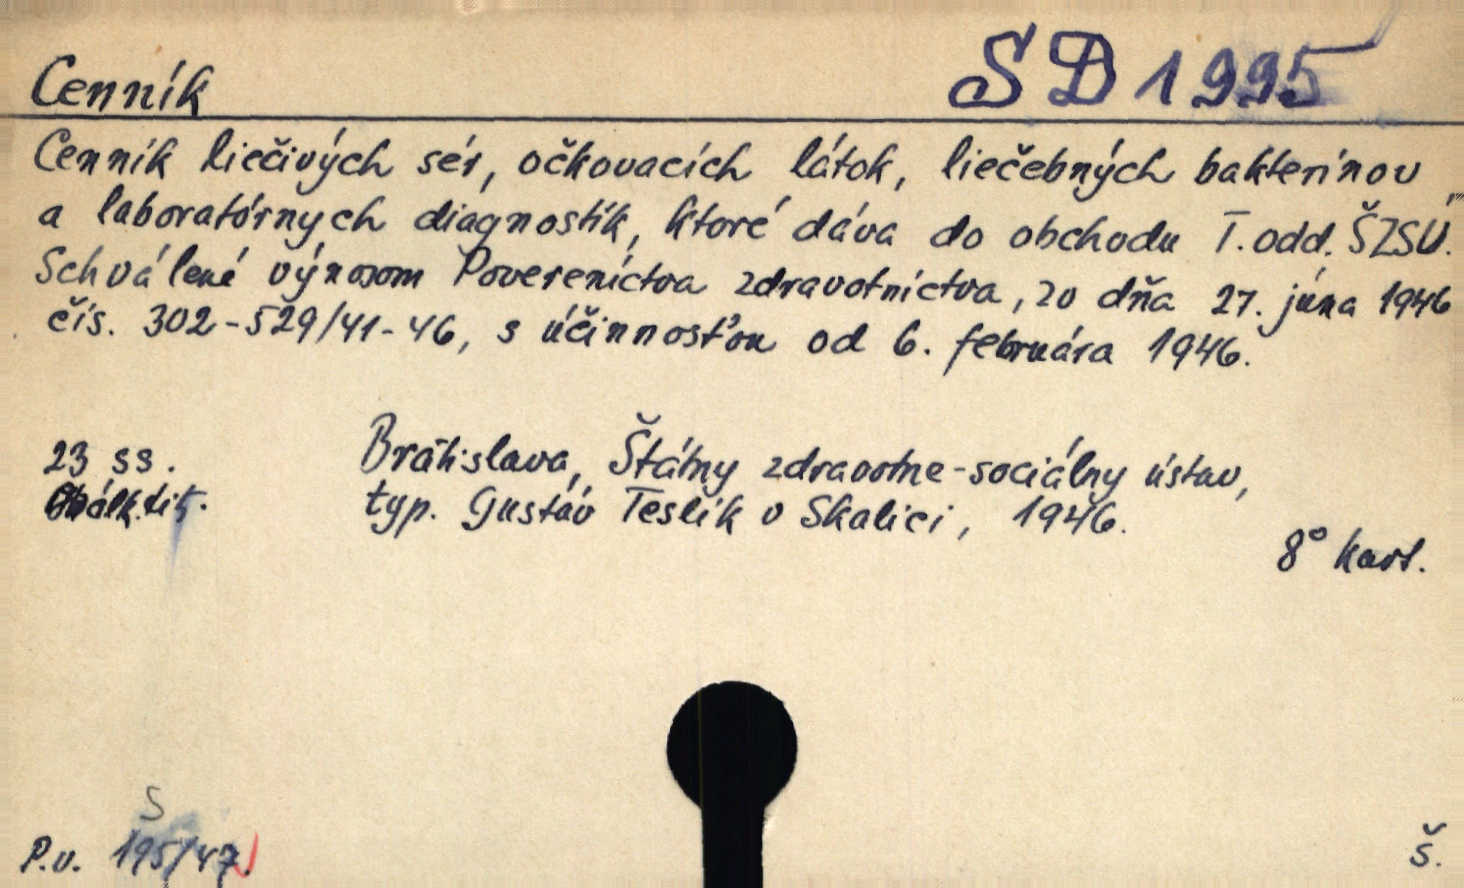 Cenník
SD 1995
Cenník liečivých sér, očkovacích látok, liečebných bakterínov
a laboratórnych diagnostík, ktoré dáva do obchodu I. odd. ŠZSÚ."
Schválené výnosom Povereníctva zdravotníctva, zo dňa 27. júna 1946
čís. 302-529/41-46, s účinnosťou od 6. februára 1946.
23 ss. Bratislava, Štátny zdravotne-sociálny ústav,
Obálk. tit. typ. Gustáv Teslík v Skalici, 1946.
8° kart.
S
P.v. 195/47.
Š.